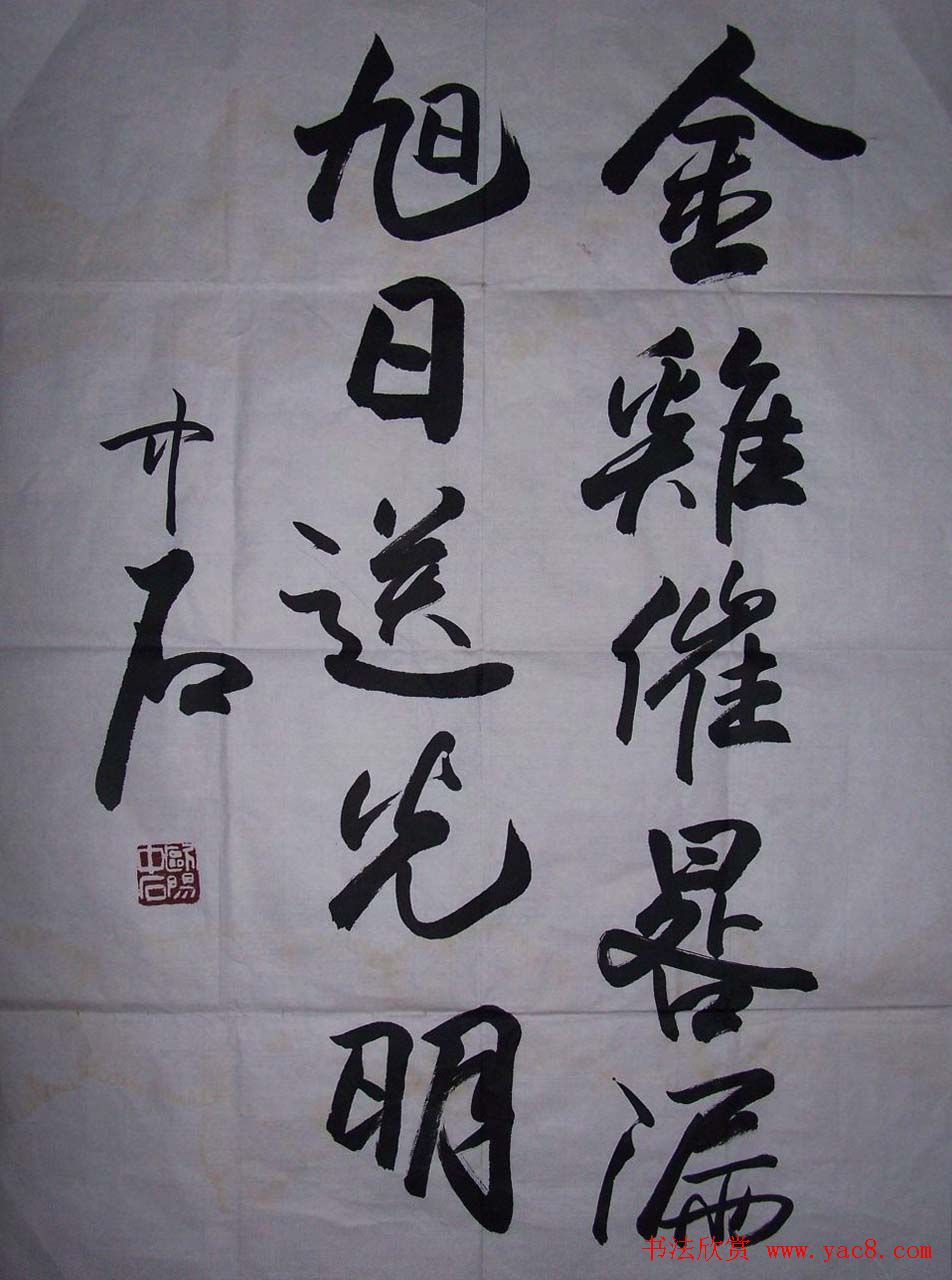 金雞催晷漏
旭日送光明
中石
歐陽中石
书法欣赏 www.yac8.com